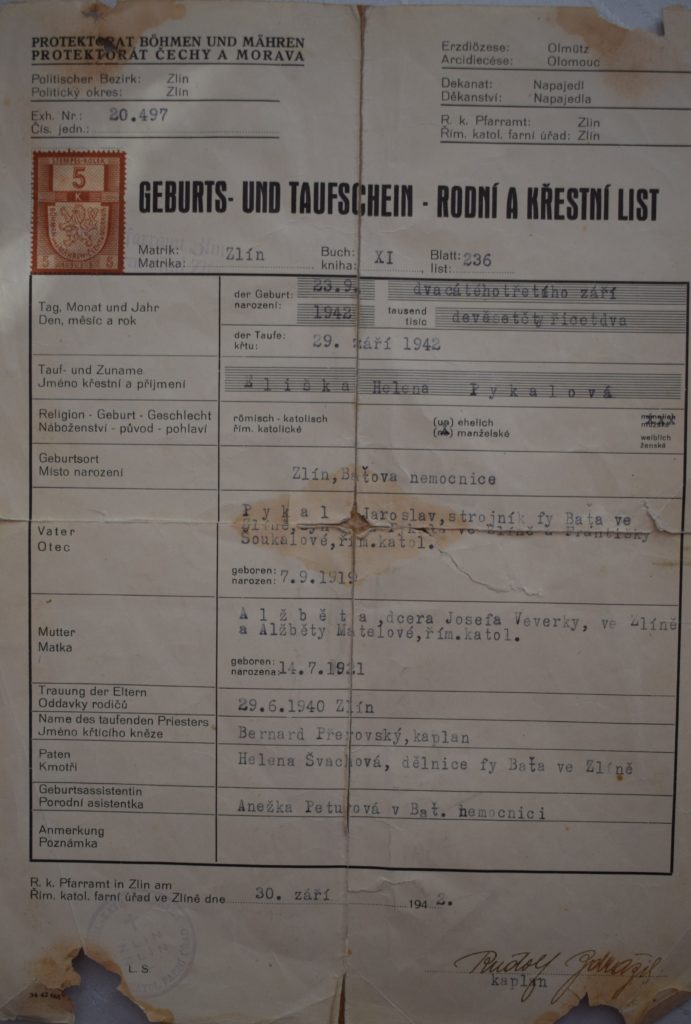 PROTEKTORAT BÖHMEN UND MÄHREN
PROTEKTORÁT ČECHY A MORAVA
Politischer Bezirk: Zlin
Politický okres: Zlín
Exh. Nr.: 20.497
Čís. jedn.:
Erzdiözese: Olmütz
Arcidiecése: Olomouc
Dekanat: Napajedl
Děkanství: Napajedla
R. k. Pfarramt: Zlin
Řím. katol. farní úřad: Zlín
STEMPEL-KOLEK
5
K
5 5
GEBURTS- UND TAUFSCHEIN - RODNÍ A KŘESTNÍ LIST
Matrik: Zlín Buch: XI Blatt: 236
Matrika: kniha: list:
Tag, Monat und Jahr
Den, měsíc a rok
der Geburt: 23.9. dvacátéhotřetího září
narození: 1942 tausend devěsetčtyřicetdva
tisíc
der Taufe: 29. září 1942
křtu:
Tauf- und Zuname
Jméno křestní a příjmení
Eliška Helena Pykalová
Religion - Geburt - Geschlecht
Náboženství - původ - pohlaví
römisch - katolisch
řím. katolické
(un) ehelich
(ne) manželské
weiblich
ženské
Geburtsort
Místo narození
Zlín, Baťova nemocnice
Vater
Otec
Pykal Jaroslav, strojník fy Baťa ve
Zlíně, ve Zlíně a Františky
Soukalové, řím.katol.
geboren:
narozen: 7.9.1919
Mutter
Matka
Alžběta, dcera Josefa Veverky, ve Zlíně
a Alžběty Matelové, řím.katol.
geboren:
narozena: 14.7.1921
Trauung der Eltern
Oddavky rodičů
29.6.1940 Zlín
Name des taufenden Priesters
Jméno křtícího kněze
Bernard Přerovský, kaplan
Paten
Kmotři
Helena Švachová, dělnice fy Baťa ve Zlíně
Geburtsassistentin
Porodní asistentka
Anežka Peturová v Bať. nemocnici
Anmerkung
Poznámka
R. k. Pfarramt in Zlin am
Řím. katol. farní úřad ve Zlíně dne 30. září 1942.
L. S.
Rudolf Zdražil
kaplan